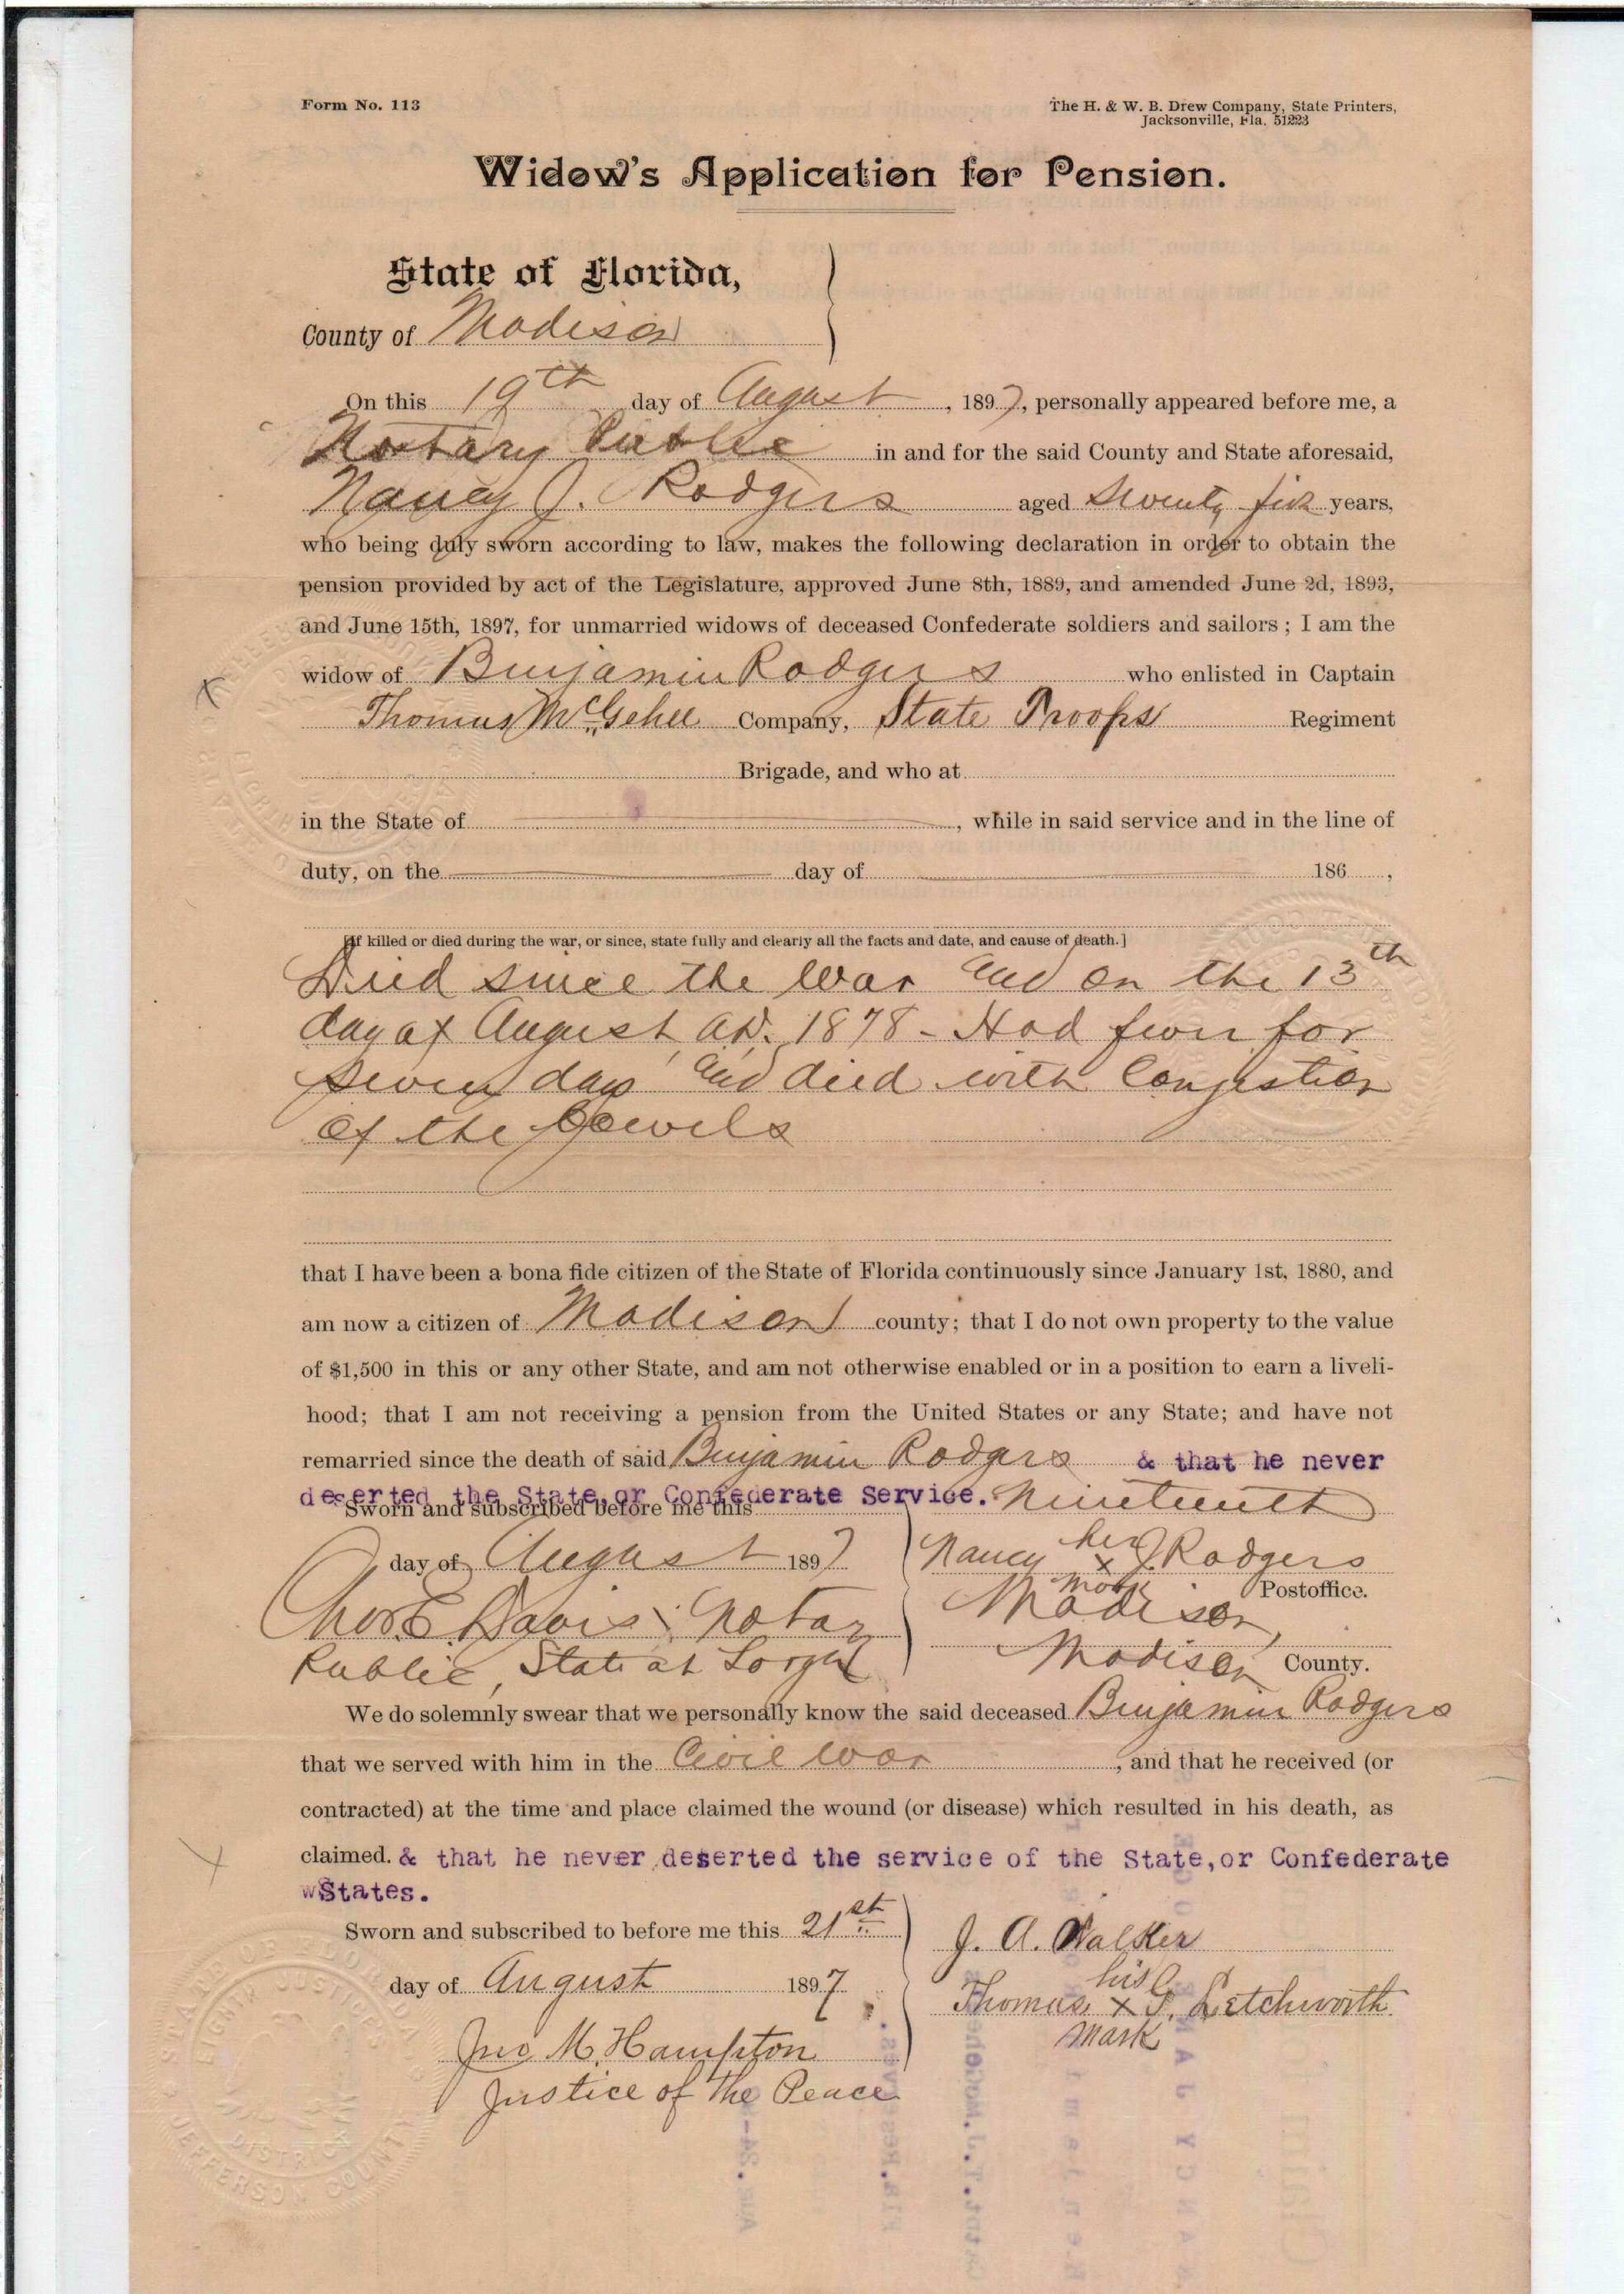 Form No. 113
The H. & W. B. Drew Company, State Printers,
Jacksonville, Fla. 51223
Widow's Application for Pension.
State of Florida,
County of Madison
On this 19th day of August, 1897, personally appeared before me, a
Notary Public in and for the said County and State aforesaid,
Nancy J. Rodgers aged Seventy five years,
who being duly sworn according to law, makes the following declaration in order to obtain the
pension provided by act of the Legislature, approved June 8th, 1889, and amended June 2d, 1893,
and June 15th, 1897, for unmarried widows of deceased Confederate soldiers and sailors; I am the
widow of Benjamin Rodgers who enlisted in Captain
Thomas McGehee Company, State Troops Regiment
Brigade, and who at
in the State of, while in said service and in the line of
duty, on the day of 186 ,
[If killed or died during the war, or since, state fully and clearly all the facts and date, and cause of death.]
Died since the War and on the 13th
day of August, AD. 1878 - Had fever for
seven days and died with Congestion
of the Bowels
that I have been a bona fide citizen of the State of Florida continuously since January 1st, 1880, and
am now a citizen of Madison county; that I do not own property to the value
of $1,500 in this or any other State, and am not otherwise enabled or in a position to earn a liveli-
hood; that I am not receiving a pension from the United States or any State; and have not
remarried since the death of said Benjamin Rodgers & that he never
deserted the State, or Confederate Service.
Sworn and subscribed before me this Nineteenth
day of August 1897
Nancy her x mark J Rodgers
Madison, Postoffice.
Chas. E. Davis Notary
Public, State at Large
Madison County.
We do solemnly swear that we personally know the said deceased Benjamin Rodgers
that we served with him in the Civil War, and that he received (or
contracted) at the time and place claimed the wound (or disease) which resulted in his death, as
claimed. & that he never deserted the service of the State, or Confederate
States.
Sworn and subscribed to before me this 21st
day of August 1897
J. A. Walker
Thomas his x mark Letchworth
Jno M. Hampton
Justice of the Peace
STATE OF FLORIDA
JUSTICES
DISTRICT
JEFFERSON COUNTY